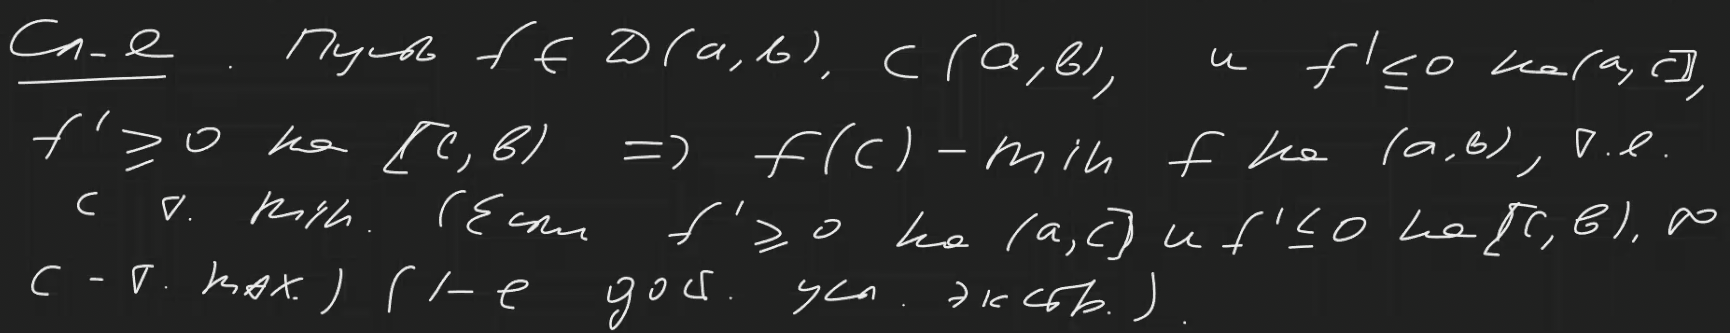 Сл-е. Пусть f ∈ D(a,b), c (a,b), и f' ≤ 0 на (a,c],
f' ≥ 0 на [c,b) => f(c) - min f на (a,b), т.е.
c т. min. (Если f' ≥ 0 на (a,c] и f' ≤ 0 на [c,b), то
c - т. max.) (1-е дост. усл. экстр.).